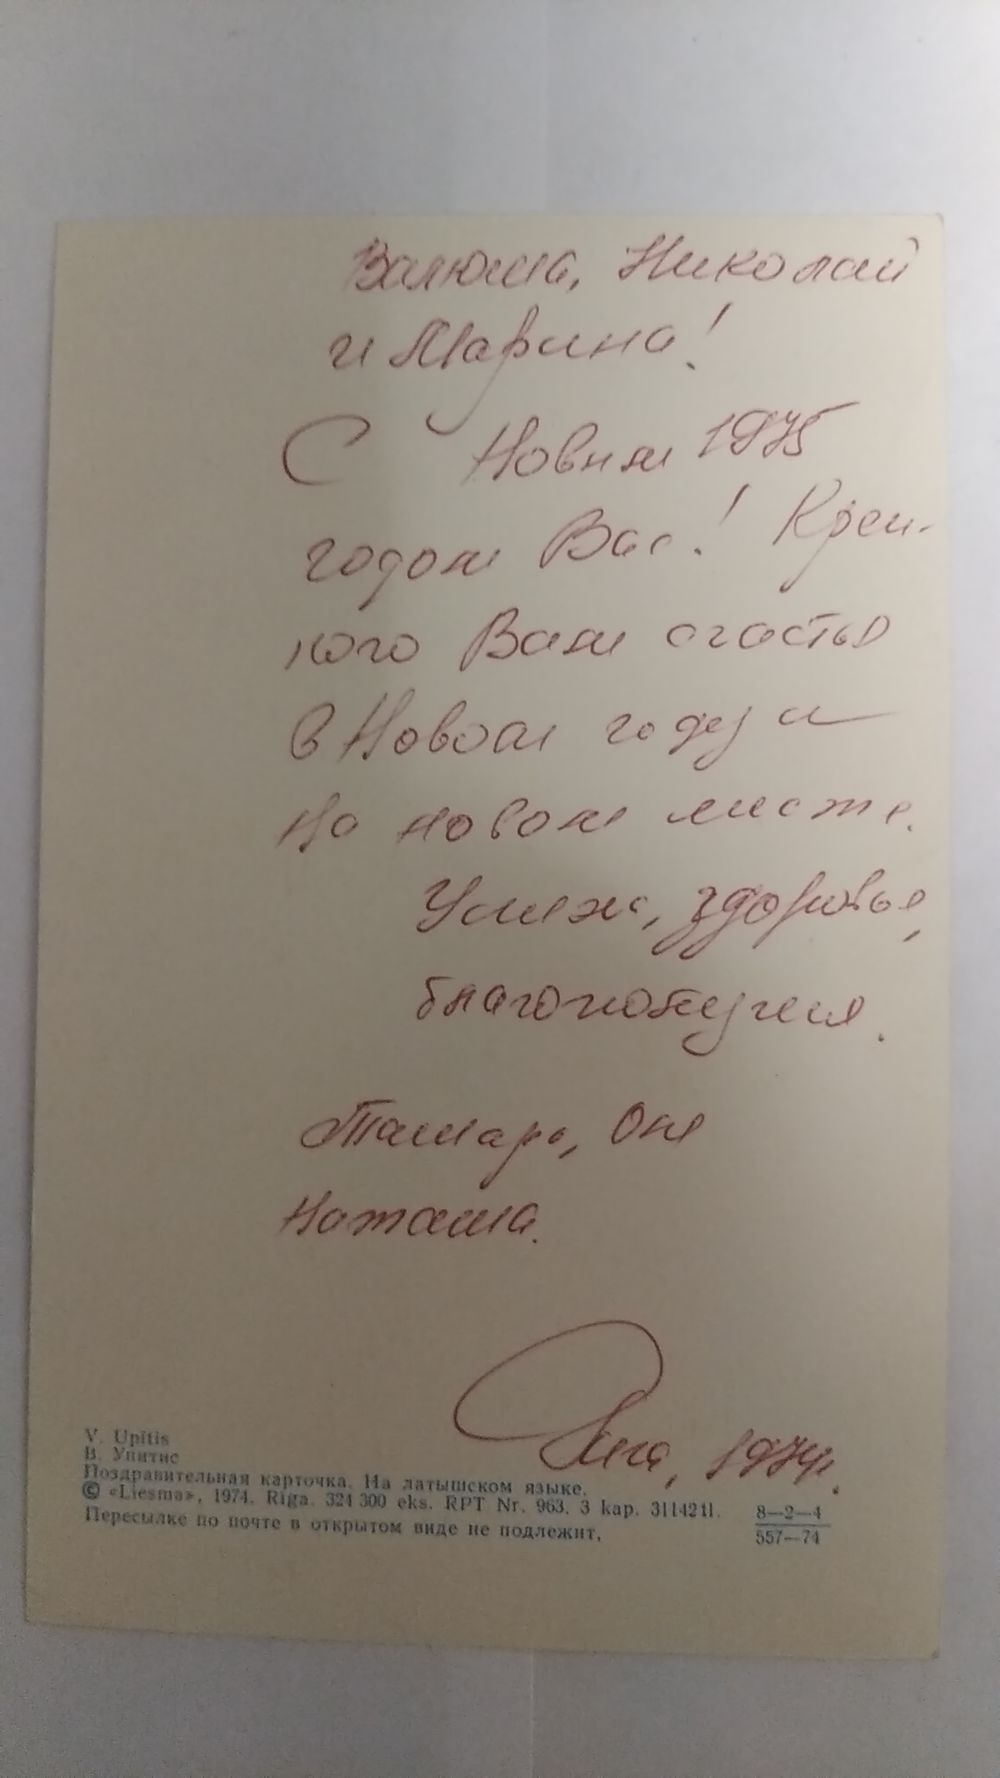 Валюша, Николай
и Марина!
С Новым 1975
годом Вас! Креп-
кого Вам счастья
в Новом году и
на новом месте.
Успеха, здоровья,
благополучия.
Тамара, Оля
Наташа.
Рига, 1974г.
V. Upītis
В. Упитис
Поздравительная карточка. На латышском языке.
© «Liesma», 1974. Rīga. 324 300 eks. RPT Nr. 963. 3 kap. 3114211.
Пересылке по почте в открытом виде не подлежит.
8—2—4
557—74